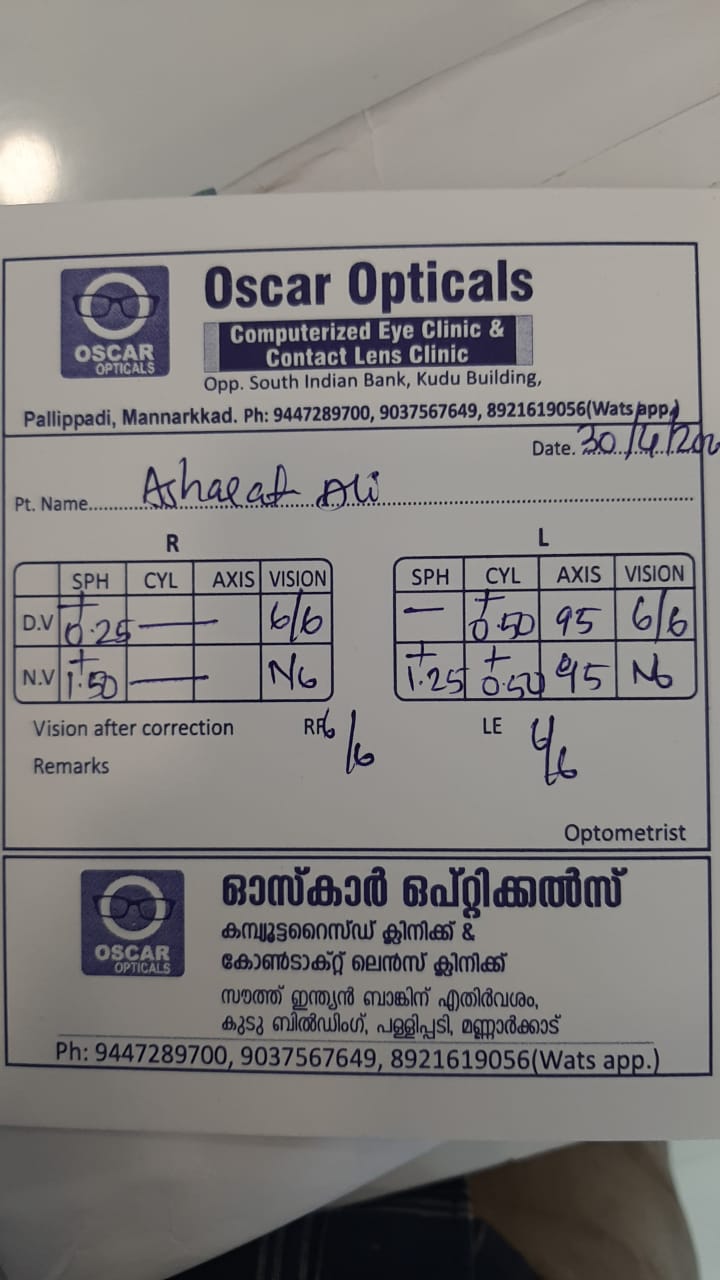 OSCAR
OPTICALS
Oscar Opticals
Computerized Eye Clinic &
Contact Lens Clinic
Opp. South Indian Bank, Kudu Building,
Pallippadi, Mannarkkad. Ph: 9447289700, 9037567649, 8921619056(Wats app.)
Date. 30/4/20
Pt. Name. Ali
R
SPH CYL AXIS VISION
D.V +0.25 — 6/6
N.V +1.50 — N6
L
SPH CYL AXIS VISION
— +0.50 95 6/6
+1.25 +0.50 95 N6
Vision after correction RE 6/6 LE 6/6
Remarks
Optometrist
OSCAR
OPTICALS
ഓസ്കാർ ഒപ്റ്റിക്കൽസ്
കമ്പ്യൂട്ടറൈസ്ഡ് ക്ലിനിക്ക് &
കോൺടാക്റ്റ് ലെൻസ് ക്ലിനിക്ക്
സൗത്ത് ഇന്ത്യൻ ബാങ്കിന് എതിർവശം,
കുടു ബിൽഡിംഗ്, പള്ളിപ്പടി, മണ്ണാർക്കാട്
Ph: 9447289700, 9037567649, 8921619056(Wats app.)